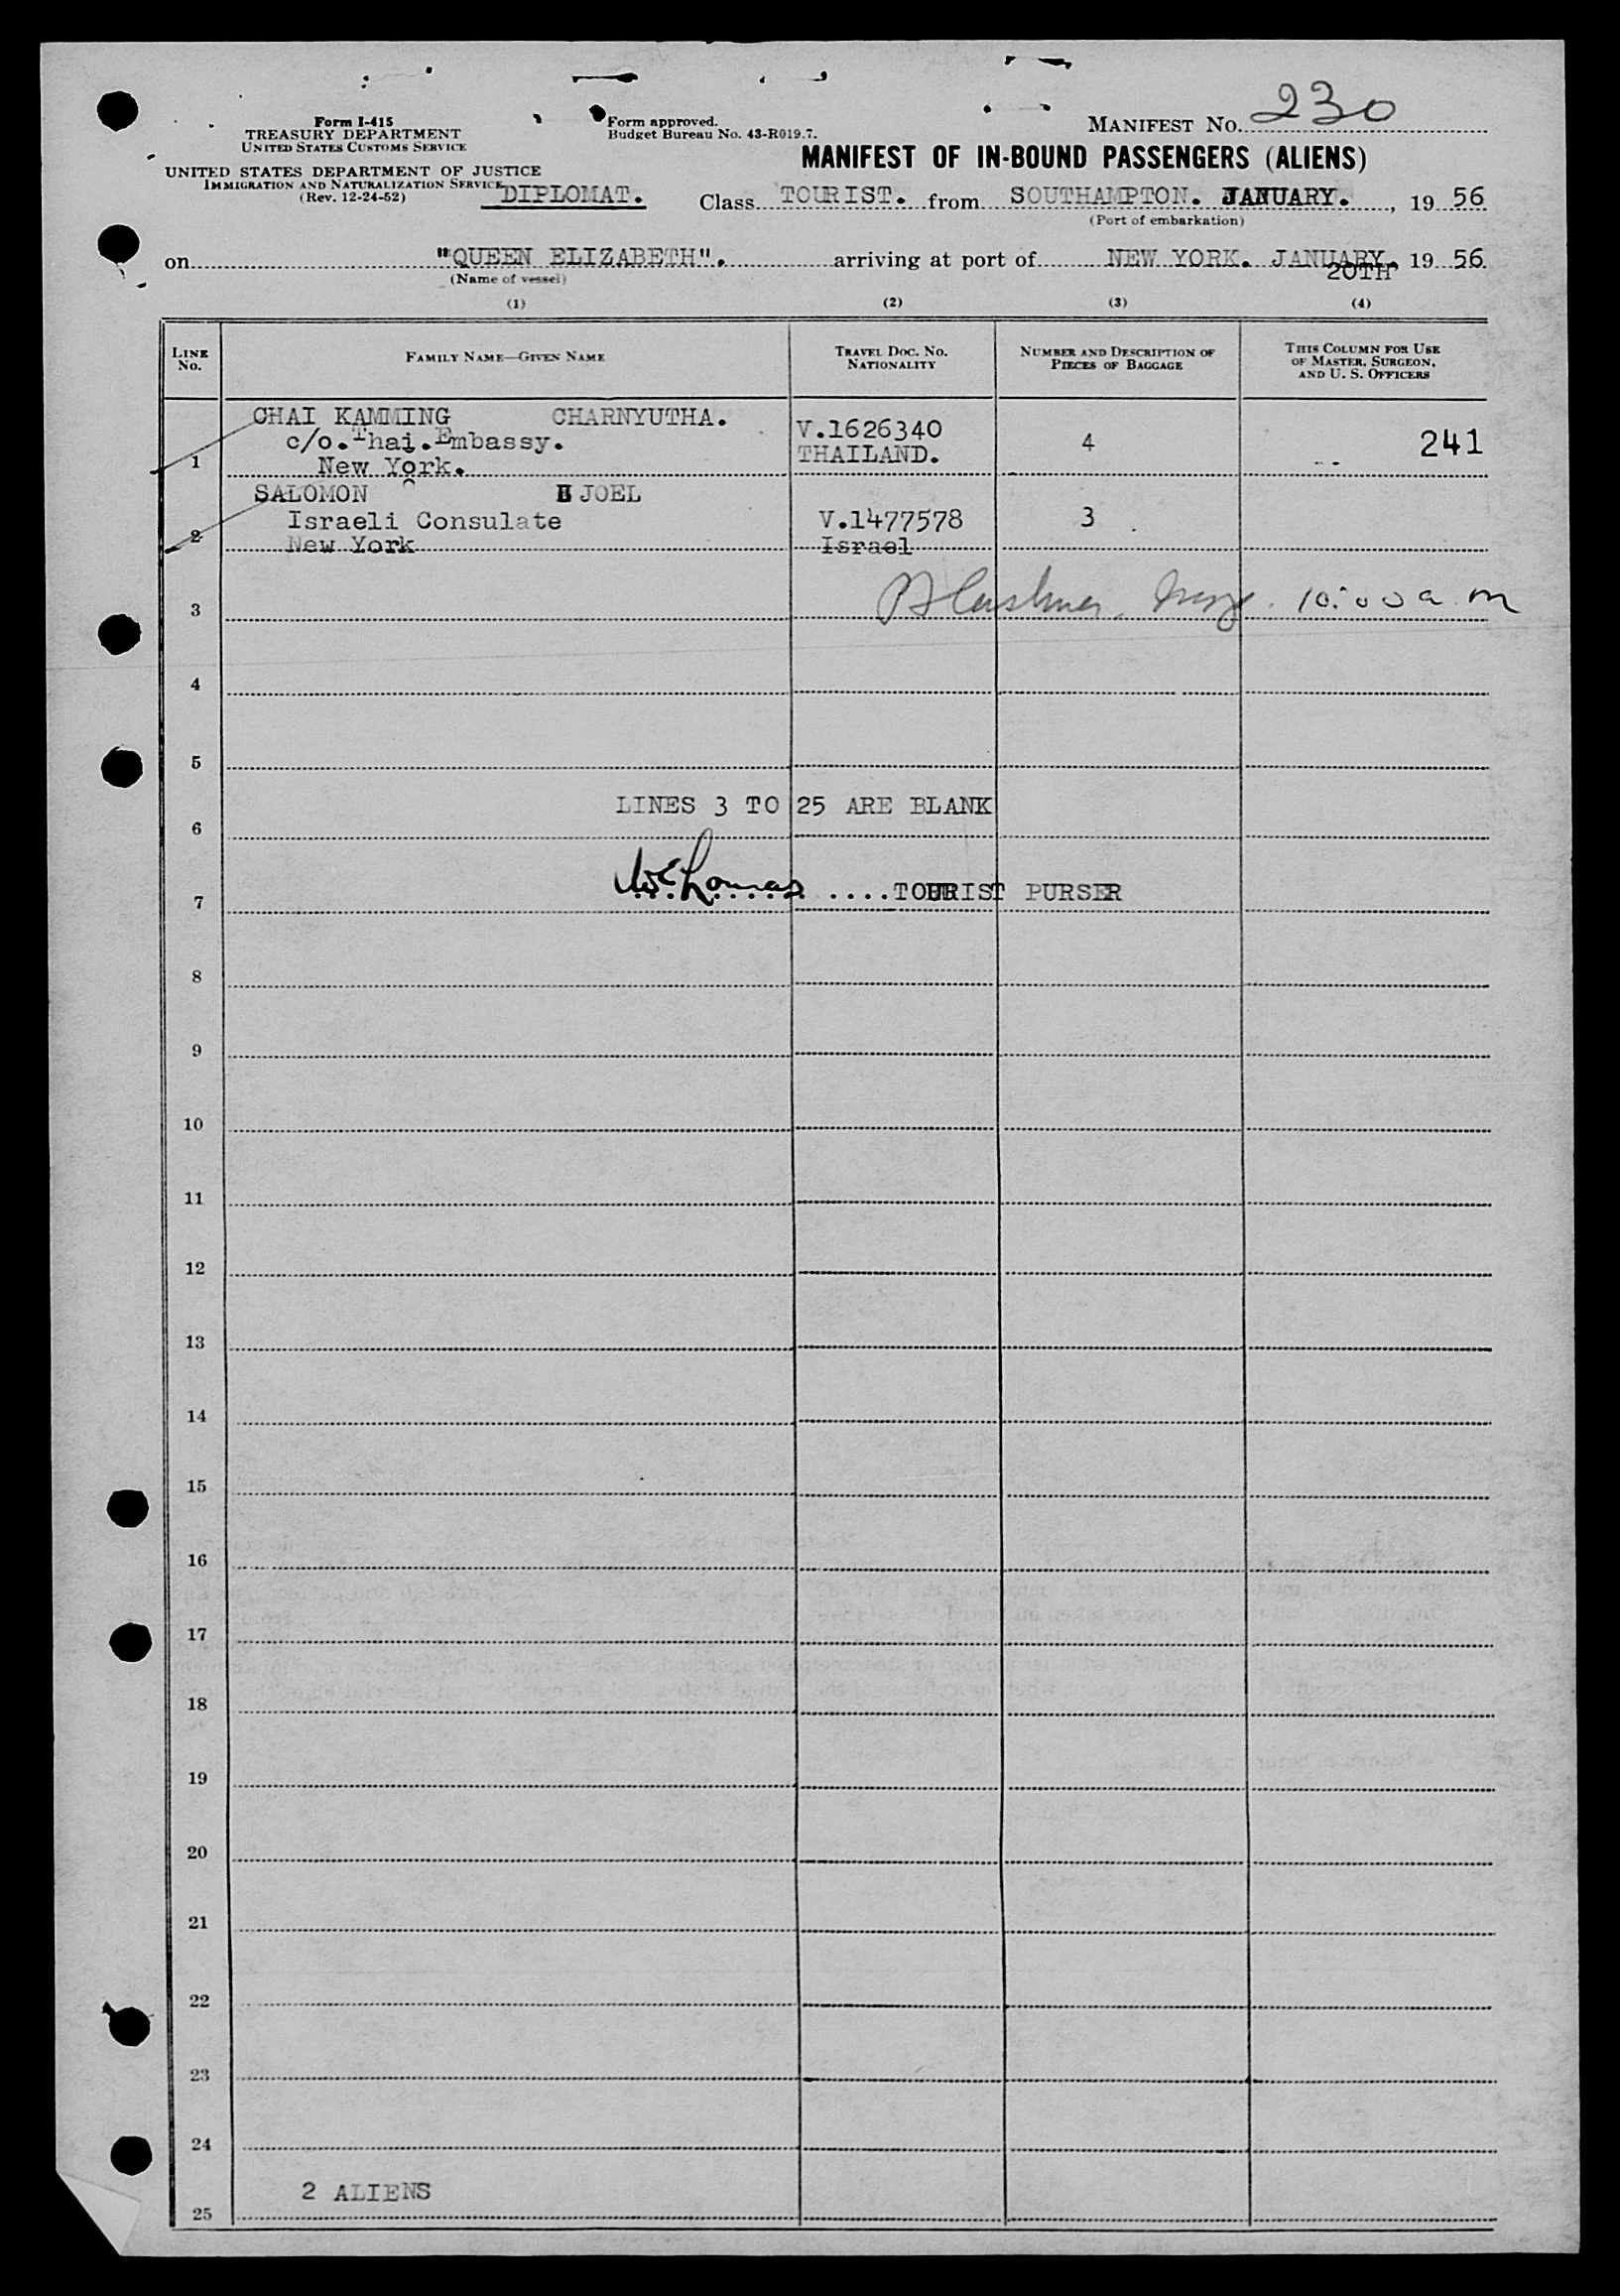 Form I-415
TREASURY DEPARTMENT
UNITED STATES CUSTOMS SERVICE
UNITED STATES DEPARTMENT OF JUSTICE
IMMIGRATION AND NATURALIZATION SERVICE
(Rev. 12-24-52)
Form approved.
Budget Bureau No. 43-R019.7.
MANIFEST NO. 230
MANIFEST OF IN-BOUND PASSENGERS (ALIENS)
DIPLOMAT. Class TOURIST. from SOUTHAMPTON. JANUARY. , 19 56
(Port of embarkation)
on "QUEEN ELIZABETH". arriving at port of NEW YORK. JANUARY. 19 56
20TH
(Name of vessel)
(1) (2) (3) (4)
LINE NO. FAMILY NAME—GIVEN NAME TRAVEL DOC. NO. NATIONALITY NUMBER AND DESCRIPTION OF PIECES OF BAGGAGE THIS COLUMN FOR USE OF MASTER, SURGEON, AND U. S. OFFICERS
CHAI KAMMING CHARNYUTHA.
c/o.Thai.Embassy. V.1626340 4 241
1 New York. THAILAND.
SALOMON JOEL
Israeli Consulate V.1477578 3
2 New York Israel
3 10:00 a m
4
5
LINES 3 TO 25 ARE BLANK
6
7 ....TOURIST PURSER
8
9
10
11
12
13
14
15
16
17
18
19
20
21
22
23
24
2 ALIENS
25